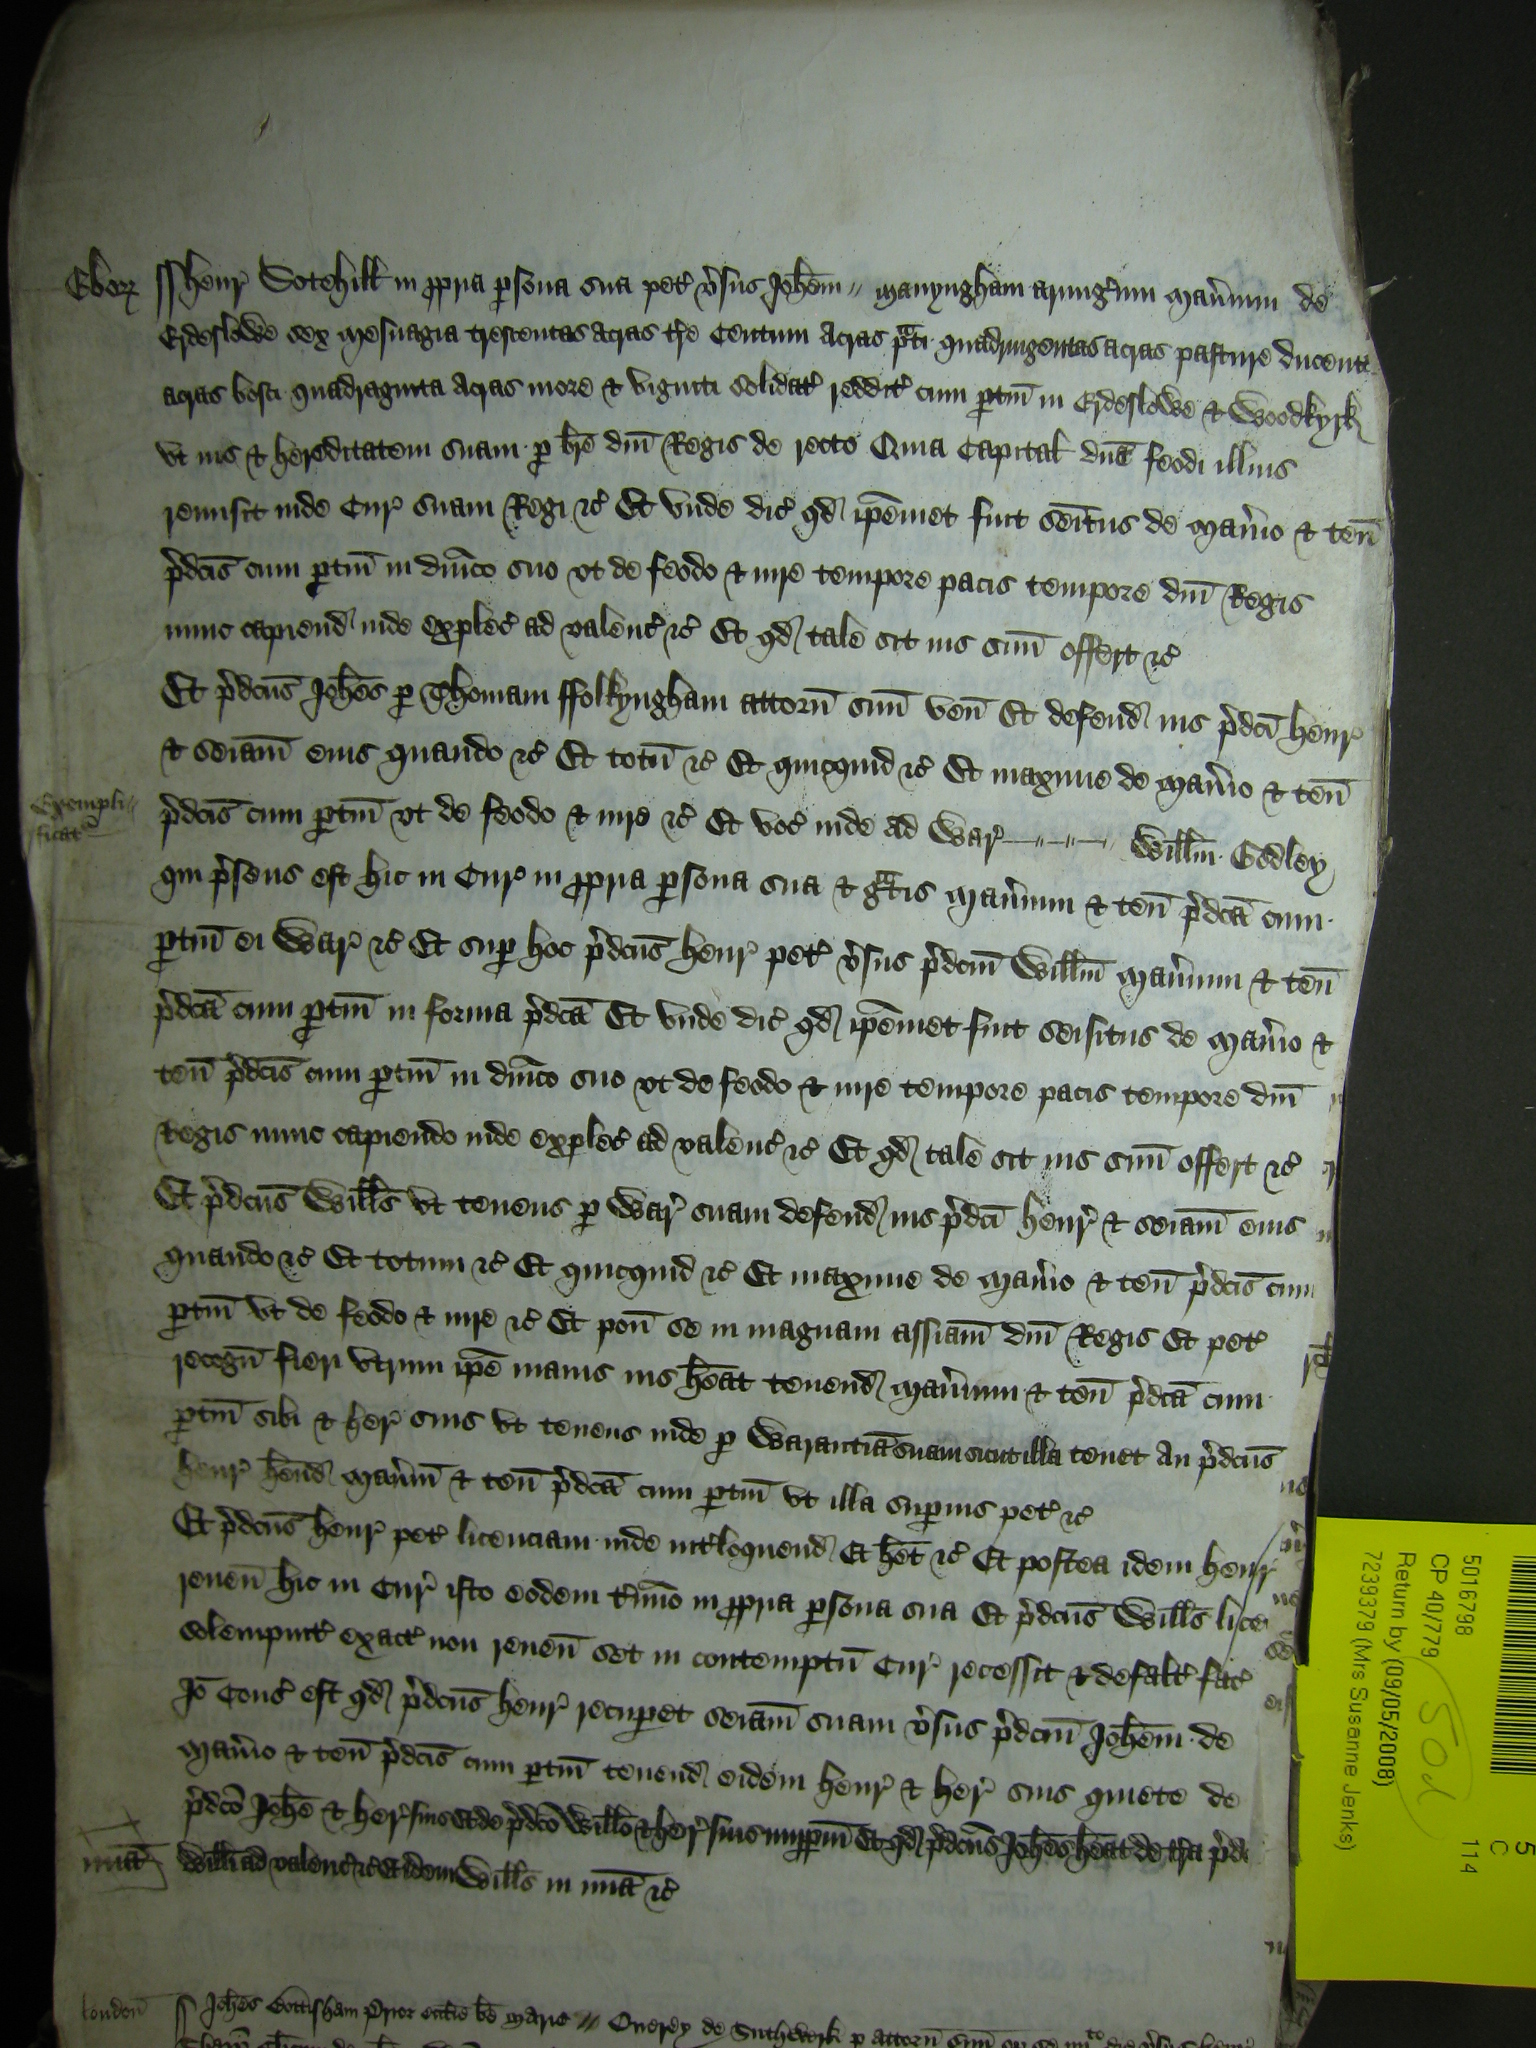 Ebor̃ ss henr̃ Sotehill in ppria psona sua pet̃ vsus Joh̃em Manyngham armigum Man̾ium de
Erdeslowe sex mesuagia trescentas acras tr̃e Centum Acras pti quadringentas acras pasture ducent
acras bosci quadraginta Acras more & viginti solidat̃ reddit̃ cum ptiñ in Erdeslowe & Woodkyrk
vt ius & hereditatem suam p br̃e dñi Regis de recto Quia Capital dñs feodi illius
remisit inde Cur̃ suam Regi &c̃ Et vnde dic̃ qd ip̃emet fuit seitus de Man̾io & teñ
p̃dcis cum ptiñ in dñico suo vt de feodo & iure tempore pacis tempore dñi Regis
nunc capiend inde explec̃ ad valenc̃ &c̃ Et qd tale sit ius suũ offert &c̃
Et p̃dcus Joh̃es p Thomam ffolkyngham attorñ suũ veñ Et defend ius p̃dci henr̃
& seiam̃ eius quando &c̃ Et totũ &c̃ Et quicquid &c̃ Et maxime de Man̾io & teñ
Exempli-
ficat̃
p̃dcis cum ptiñ vt de feodo & iure &c̃ Et voc̃ inde ad War̃ Willm̃ Godley
qui p̃sens est hic in Cur̃ in ppria psona sua & gr̃tis Man̾ium & teñ p̃dca cum
ptiñ ei War̃ &c̃ Et sup hoc p̃dcus henr̃ pet̃ vsus p̃dcm̃ Willm̃ Man̾ium & teñ
p̃dca cum ptiñ in forma p̃dca Et vnde dic̃ qd ip̃emet fuit seisitus de Man̾io &
teñ p̃dcis cum ptiñ in dñico suo vt de feodo & iure tempore pacis tempore dñi
Regis nunc capiendo inde explec̃ ad valenc̃ &c̃ Et qd tale sit ius suũ offert &c̃
Et p̃dcus Wills̃ vt tenens p War̃ suam defend ius p̃dci henr̃ & seiam̃ eius
quando &c̃ Et totum &c̃ Et quicquid &c̃ Et maxime de Man̾io & teñ p̃dcis cum
ptiñ vt de feodo & iure &c̃ Et poñ se in magnam assiam̃ dñi Regis Et pet̃
recogñ fieri vtrum ip̃e maius ius h̃eat tenend Man̾ium & teñ p̃dca cum
ptiñ sibi & her̃ suis vt tenens inde p Warantiã suam sicut illa tenet An p̃dcus
henr̃ h̃end Man̾iũ & teñ p̃dca cum ptiñ vt illa superius pet̃ &c̃
Et p̃dcus henr̃ pet̃ licenciam inde int̃loquend Et h̃et &c̃ Et postea idem henr̃
reveñ hic in Cur̃ isto eodem t̃mĩo in ppria psona sua Et p̃dcus Wills̃ lice
solempnit̃ exact̃ non reveñ set in contemptũ Cur̃ recessit & defalt̃ fac̃
Jõ Cons̃ est qd p̃dcus henr̃ recupet seiam̃ suam vsus p̃dcm̃ Joh̃em de
Man̾io & teñ p̃dcis cum ptiñ tenend eidem henr̃ & her̃ suis quiete de
p̃dco Joh̃e & her̃ suis Et de p̃dco Willo & her̃ suis imppm̃ Et qd p̃dcus Joh̃es h̃eat de tr̃a p̃dc
mĩa
Willi ad valenc̃ &c̃ Et idem Wills̃ in mĩa &c̃
London̾ ss Joh̃es Bottisham Prior eccl̃ie b̃e Marie Overey de Suthewerk p attorñ suũ
5016798
CP 40/779
50d
Return by (09/05/2008)
7239379 (Mrs Susanne Jenks)
5
C
114